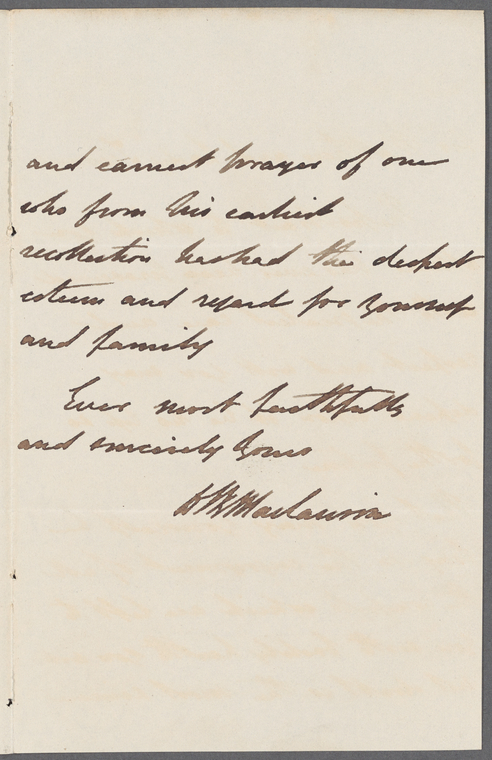 and earnest prayer of one
who from his earliest
recollection has had the deepest
esteem and regard for yourself
and family
Ever most faithfully
and sincerely yours
Maclaurin